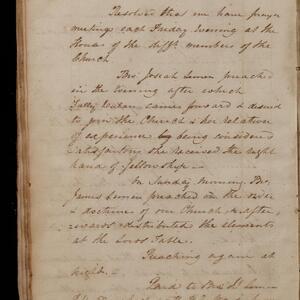 Resolved that we have prayer
meetings each Friday Evening at the
House of the diff't members of the
Church
Bro. Josiah Lemen preached
in the Evening after which
came forward & desired
to join the Church & her relation
of experience being considered
satisfactory she received the right
hand of fellowship —
On Sunday morning Bro.
James Lemen preached on the rise
& doctrine of our Church & after-
wards distributed the elements
at the Lord's Table.
Preaching again at
night.
Paid to Bro.